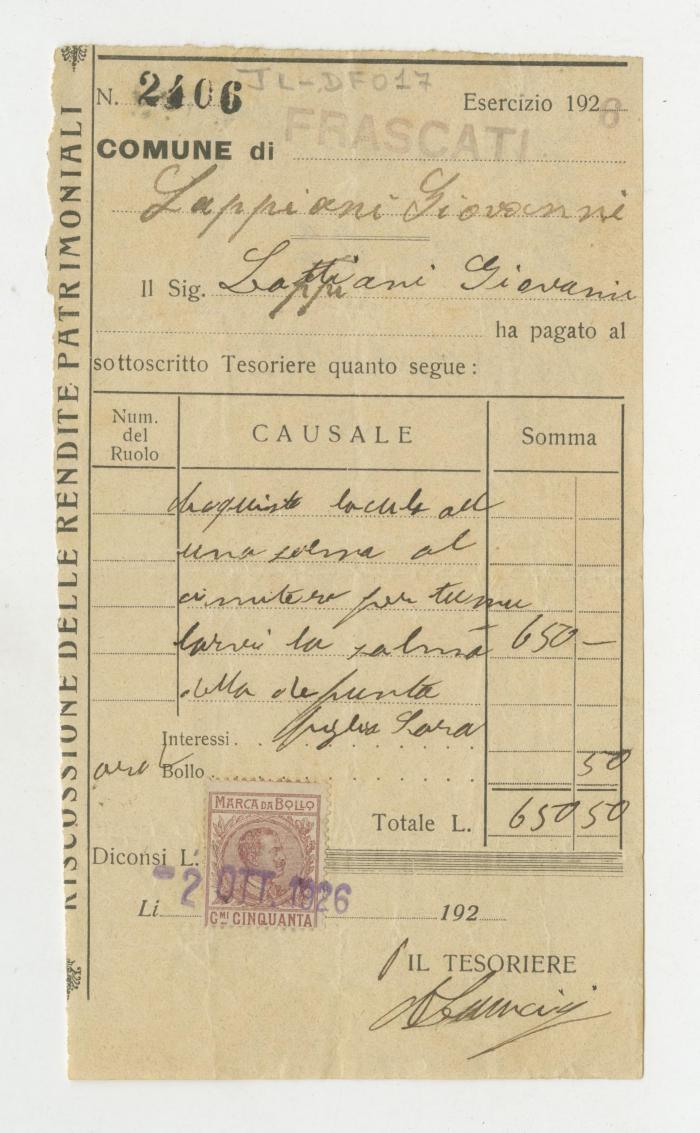 N. 2406 JL-DF017 Esercizio 1926
FRASCATI
COMUNE di
Lappiani Giovanni
Il Sig. Lappiani Giovanni
ha pagato al
sottoscritto Tesoriere quanto segue:
Num. del Ruolo CAUSALE Somma
acquisto loculo ad
una salma al
cimitero per tumu
larvi la salma 650 —
della defunta
figlia Sara
Interessi
Bollo 50
MARCA DA BOLLO
Totale L. 650 50
Diconsi L.
-2 OTT. 1926
Li 192
CMI CINQUANTA
IL TESORIERE
RISCOSSIONE DELLE RENDITE PATRIMONIALI